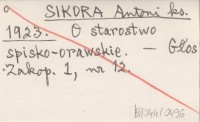 SIKORA Antoni ks.
1923. O starostwo
spisko-orawskie. — Głos
Zakop. 1, nr 12.